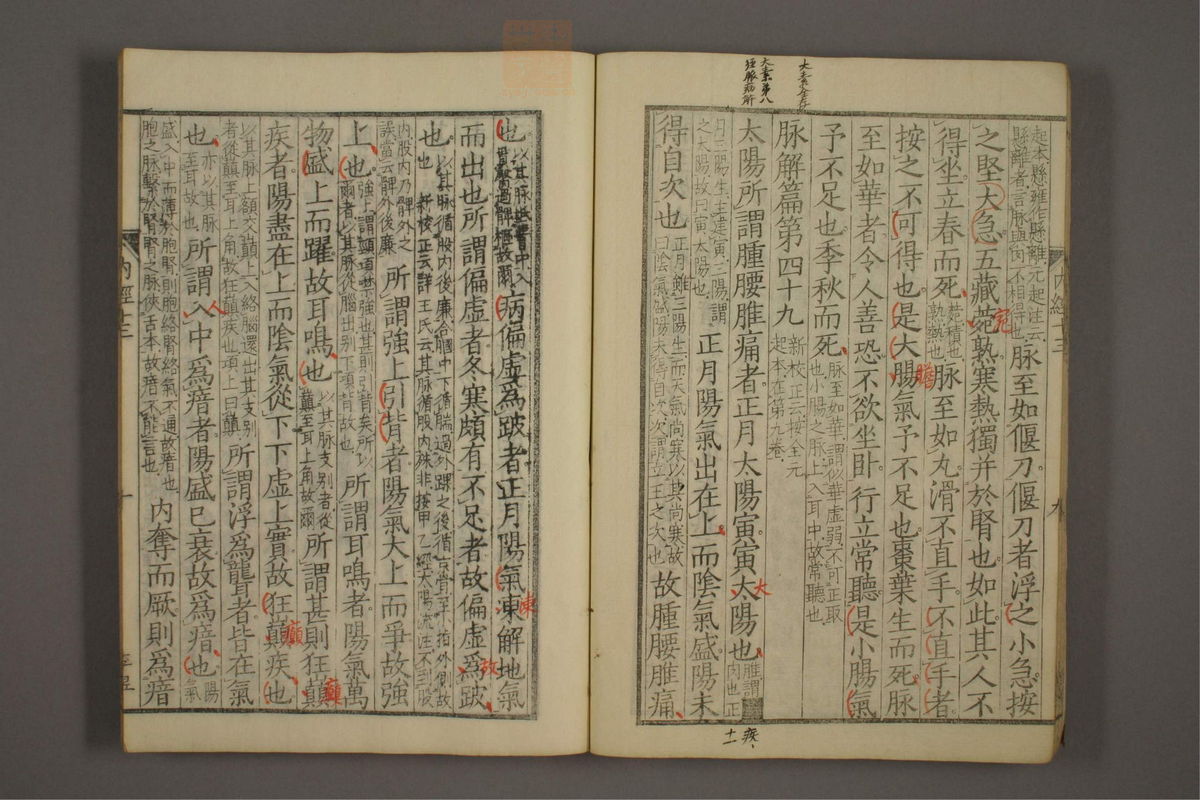 大素第八
經脉病解
起本懸離作懸離元起注云
懸離者言脉與肉不相得也脉至如偃刀偃刀者浮之小急按
之堅大急五藏菀熟寒熱獨并於腎也如此其人不
得坐立春而死菀積也熟熱也脉至如丸滑不直手不直手者
按之不可得也是大腸氣予不足也棗葉生而死脉
至如華者令人善恐不欲坐卧行立常聽是小腸氣
予不足也季秋而死脉至如華謂似華虛弱不可正取也小腸之脉上入耳中故常聽也
脉解篇第四十九新校正云按全元起本在第九卷
太陽所謂腫腰脽痛者正月太陽寅寅太陽也脽謂
月三陽生主建寅三陽謂之太陽故曰寅太陽也正月陽氣出在上而陰氣盛陽未
得自次也正月雖三陽生而天氣尚寒以其尚寒故曰陰氣盛陽未得自次次謂立王之次也故腫腰脽痛
也以其脉抵腰中入病偏虛爲跛者正月陽氣凍解地氣
而出也所謂偏虛者冬寒頗有不足者故偏虛爲跛
也以其脉循股內後廉合膕中下循腨過外踝之後循京骨至小指外側故也新校正云詳王氏云其脉循股內殊非按甲乙經太陽流注不到股
內股內乃髀外之誤當云髀外後廉所謂強上引背者陽氣大上而爭故強
上也強上謂頸項噤強也甚則引背矣所以爾者以其脉從腦出別下項背故也所謂耳鳴者陽氣萬
物盛上而躍故耳鳴也以其脉支別者從巔至耳上角故爾所謂甚則狂巔
疾者陽盡在上而陰氣從下下虛上實故狂巔疾也
以其脉上額交巔上入絡腦還出其支別者從巔至耳上角故狂巔疾也項上曰巔所謂浮爲聾者皆在氣
也亦以其脉至耳故也所謂入中爲瘖者陽盛已衰故爲瘖也陽氣
盛入中而薄於胞腎則胞絡腎絡氣不通故瘖也胞之脉繫於腎腎之脉俠舌本故瘖不能言也內奪而厥則爲瘖
內經十三